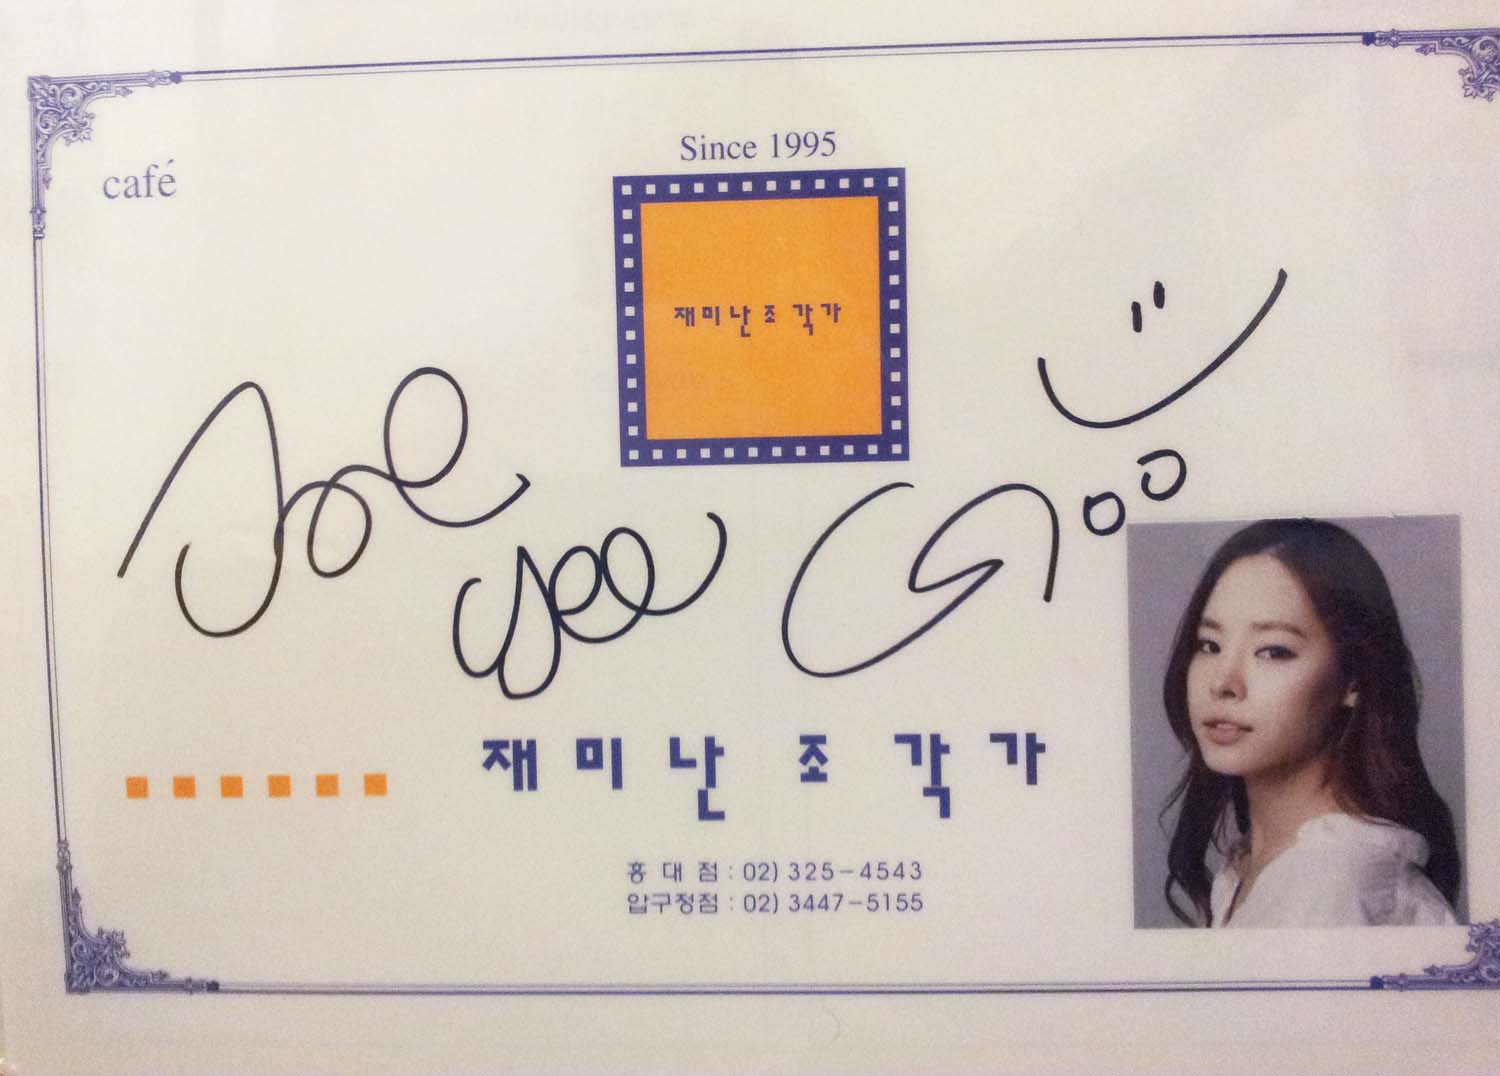 Since 1995
café
재미난조각가
재미난 조각가
홍대점 : 02) 325-4543
압구정점 : 02) 3447-5155